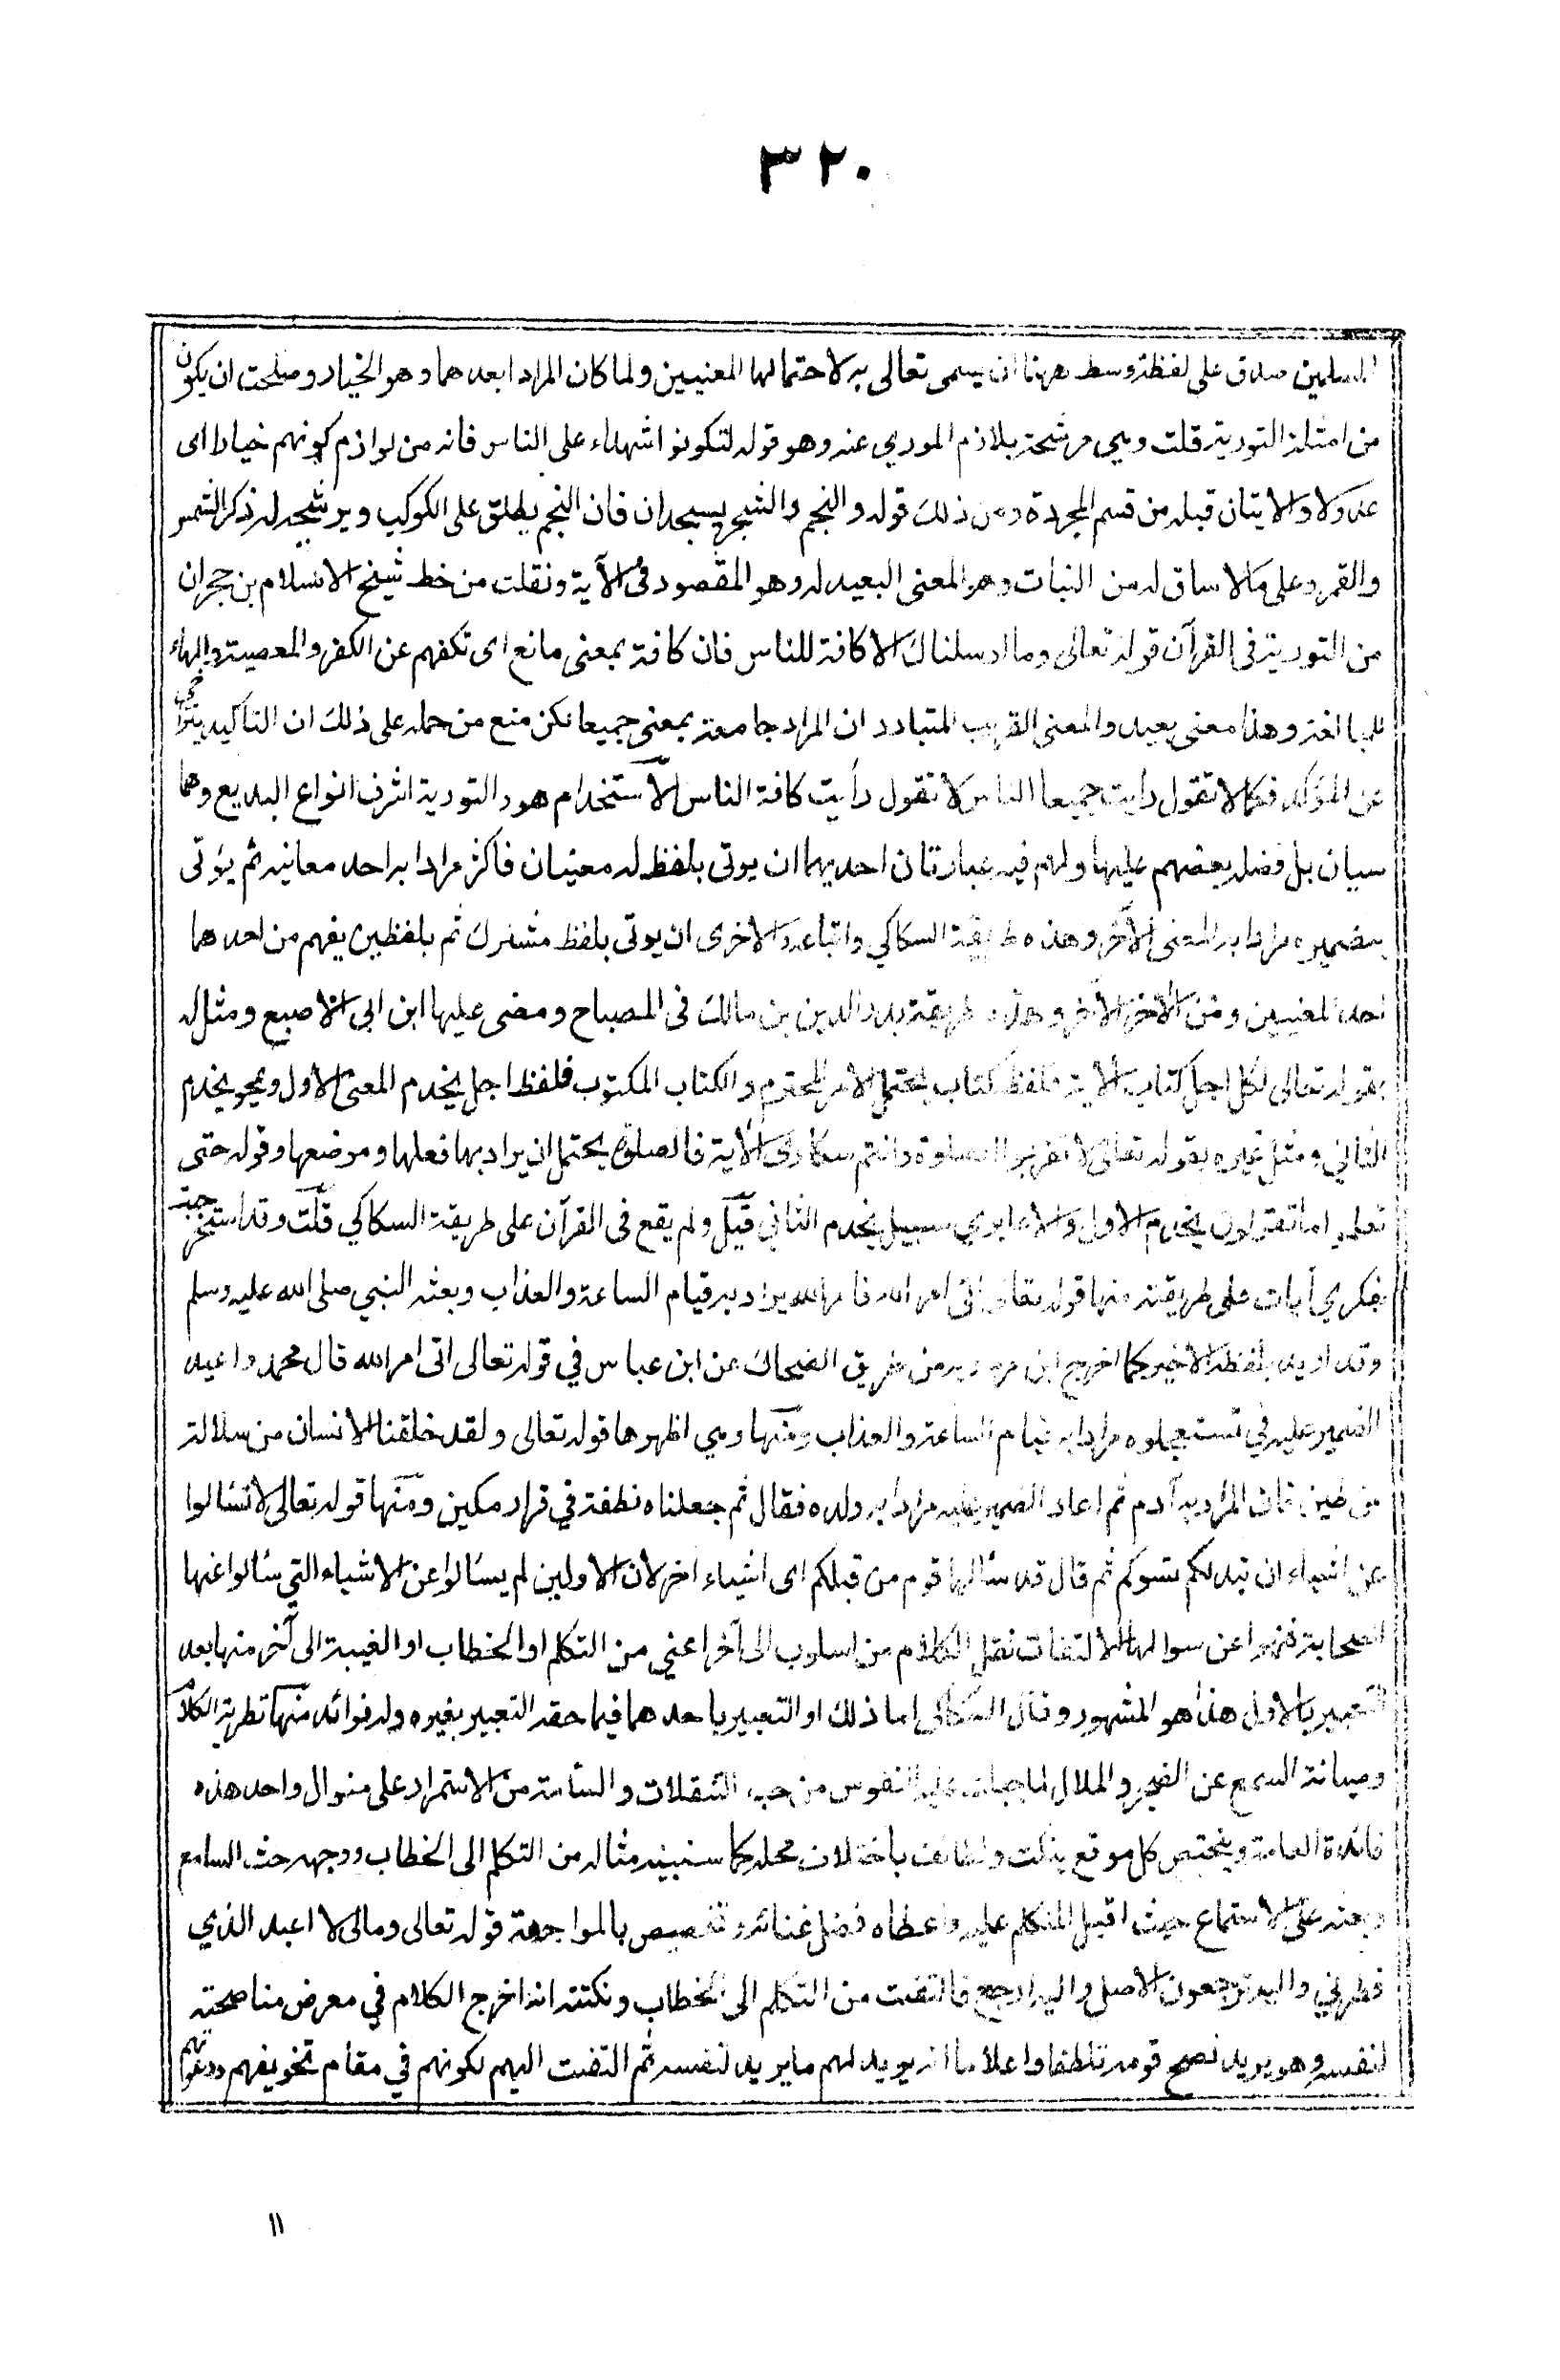 ٣٢٠
المسلمين صدق على لفظة وسط ههنا ان يسمى تعالى به لاحتمالها المعنيين ولما كان المراد ابعدهما وهو الخيار وصلحت ان يكون
من امثلة التورية قلت وهي مرشحة بلازم المورى عنه وهو قوله لتكونوا شهداء على الناس فانه من لوازم كونهم خيارا اى
عدولا والايتان قبله من قسم المجردة ومن ذلك قوله والنجم والشجر يسجدان فان النجم يطلق على الكوكب ويرشحه له ذكر الشمس
والقمر وعلى ما لا ساق له من النبات وهو المعنى البعيد له وهو المقصود في الآية ونقلت من خط شيخ الاسلام بن حجر ان
من التورية فى القرآن قوله تعالى وما ارسلناك الا كافة للناس فان كافة بمعنى مانع اى تكفهم عن الكفر والمعصية والهاء
للمبالغة وهذا معنى بعيد والمعنى القريب المتبادر ان المراد جامعة بمعنى جميعا لكن منع من حمله على ذلك ان التأكيد يتراخى
عن المؤكد فكما لا تقول رأيت جميعا الناس لا تقول رأيت كافة الناس الاستخدام هو والتورية اشرف انواع البديع وهما
سيان بل فضله بعضهم عليها ولهم فيه عبارتان احديهما ان يوتى بلفظ له معنيان فاكثر مرادا به احد معانيه ثم يؤتى
بضميره مرادا به المعنى الآخر وهذه طريقة السكاكي واتباعه والاخرى ان يوتى بلفظ مشترك ثم بلفظين يفهم من احدهما
احد المعنيين ومن الآخر الآخر وهذه طريقة بدر الدين بن مالك فى المصباح ومضى عليها ابن ابى الاصبع ومثل له
بقوله تعالى لكل اجل كتاب الآية فلفظ كتاب يحتمل الامد المحتوم والكتاب المكتوب فلفظ اجل يخدم المعنى الاول ويمحو يخدم
الثاني ومثل غيره بقوله تعالى لا تقربوا الصلوة وانتم سكارى الآية فالصلوة يحتمل ان يراد بها فعلها وموضعها وقوله حتى
تعلموا ما تقولون يخدم الاول والا عابري سبيل يخدم الثاني قيل ولم يقع فى القرآن على طريقة السكاكي قلت وقد استخرجت
بفكري آيات على طريقته منها قوله تعالى اتى امر الله فامر الله يراد به قيام الساعة والعذاب وبعثه النبي صلى الله عليه وسلم
وقد اريد بلفظه الاخير كما اخرج ابن مردويه من طريق الضحاك عن ابن عباس في قوله تعالى اتى امر الله قال محمد واعيد
الضمير عليه في تستعجلوه مرادا به قيام الساعة والعذاب ومنها وهي اظهرها قوله تعالى ولقد خلقنا الانسان من سلالة
من طين فان المراد به آدم ثم اعاد الضمير عليه مرادا به ولده فقال ثم جعلناه نطفة في قرار مكين ومنها قوله تعالى لا تسٔالوا
عن اشياء ان تبد لكم تسوكم ثم قال قد سألها قوم من قبلكم اى اشياء اخر لان الاولين لم يسٔالوا عن الاشياء التي سٔالوا عنها
الصحابة فنهوا عن سوالها الالتفات نقل الكلام من اسلوب الى آخر اعني من التكلم او الخطاب او الغيبة الى آخر منها بعد
التعبير بالاول هذا هو المشهور وقال السكاكي اما ذلك او التعبير باحدهما فيما حقه التعبير بغيره وله فوائد منها تطرية الكلام
وصيانة السمع عن الضجر والملال لما جبلت عليه النفوس من حب التنقلات والسٔامة من الاستمرار على منوال واحد هذه
فائدة العامة ويختص كل موقع بنكت ولطائف باختلاف محله كما سنبينه مثاله من التكلم الى الخطاب ووجهه حث السامع
وبعثه على الاستماع حيث اقبل المتكلم عليه واعطاه فضل عنائه وتخصيص بالمواجهة قوله تعالى ومالى لا اعبد الذي
فطرني واليه ترجعون الاصل واليه ارجع فالتفت من التكلم الى الخطاب ونكتته انه اخرج الكلام في معرض مناصحته
لنفسه وهو يريد نصح قومه تلطفا واعلاما انه يريد لهم ما يريد لنفسه ثم التفت اليهم لكونهم في مقام تخويفهم ودعوتهم
١١